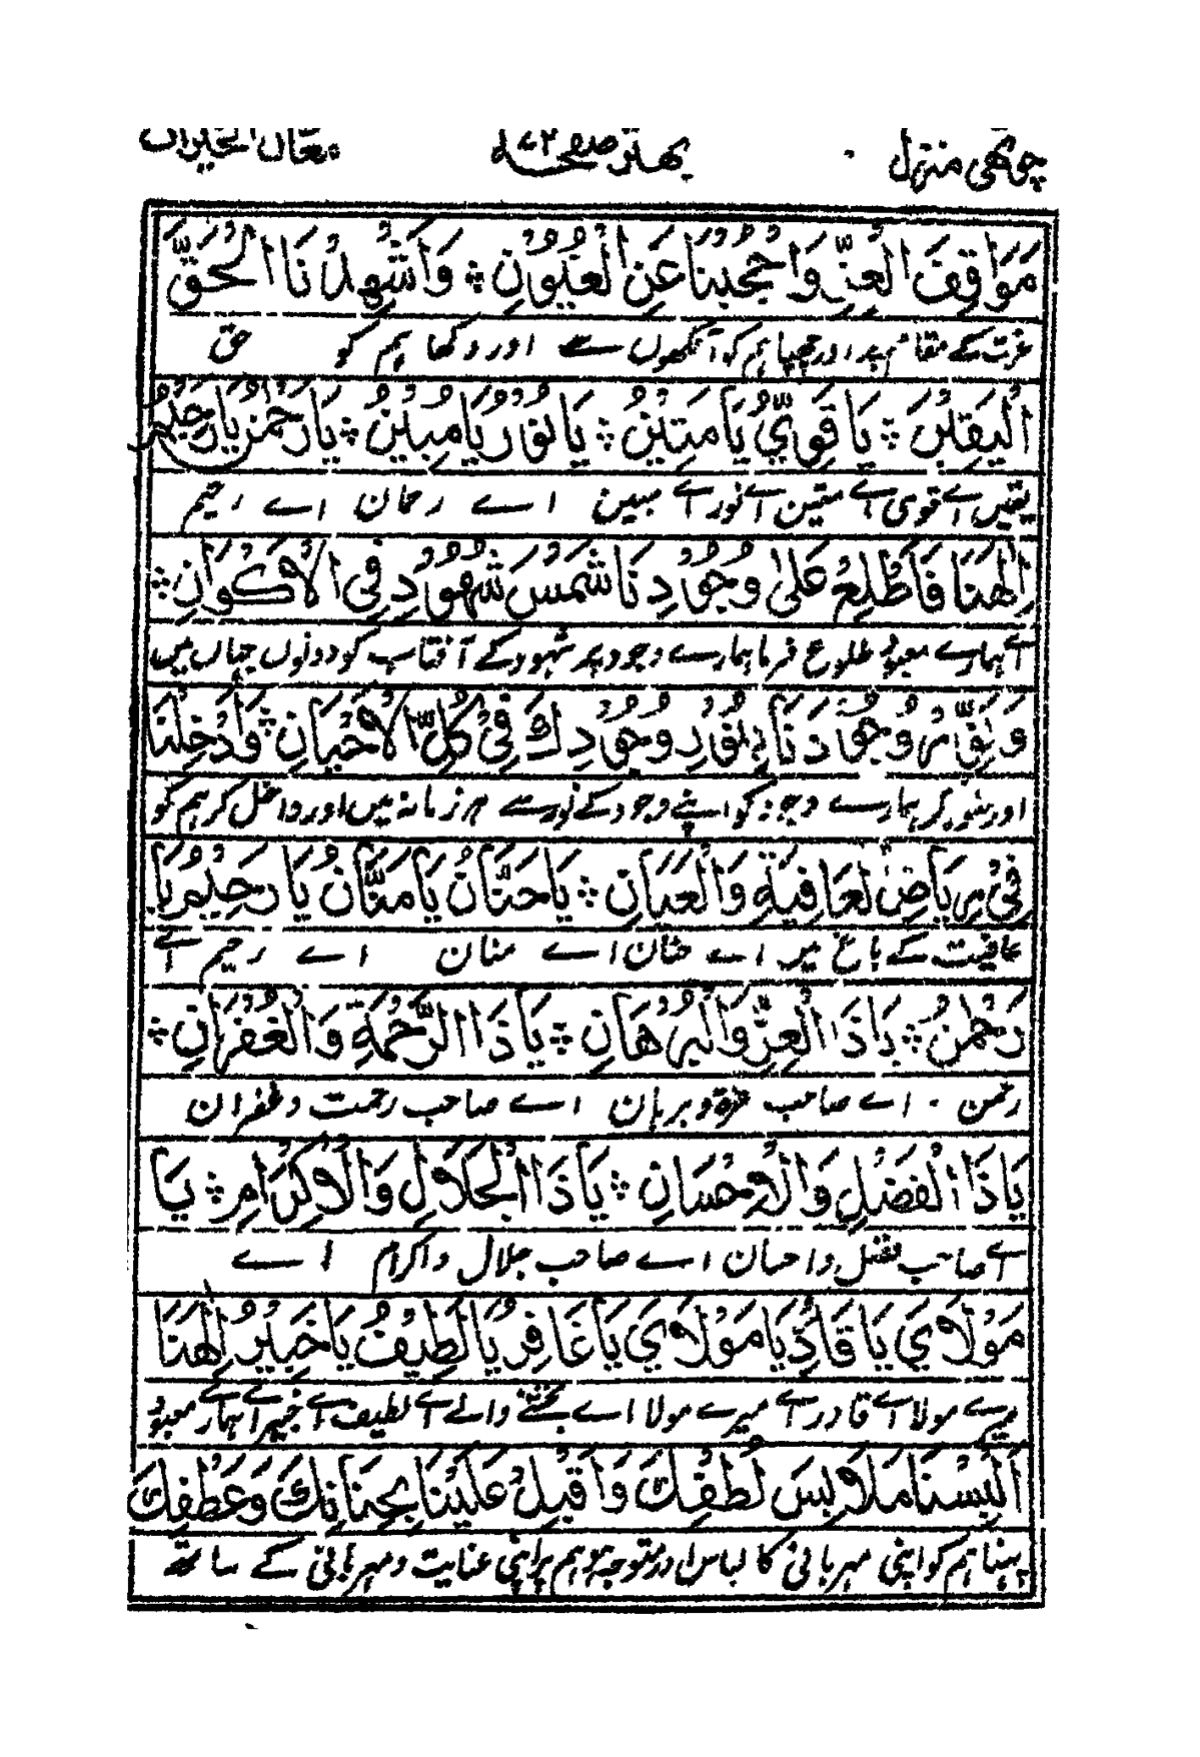 چوتھی منزل بہتر صفحہ ۷۲
مَوَاقِفَ الْعِزِّ وَاحْجُبْنَا عَنِ الْعُيُوْنِ ؞ وَاَشْهِدْنَا الْحَقَّ
عزت کے مقام پر اور چھپا ہم کو آنکھوں سے اور دکھا ہم کو حق
الْيَقِيْنَ ؞ يَا قَوِيُّ يَا مَتِيْنُ ؞ يَا نُوْرُ يَا مُبِيْنُ ؞ يَا رَحْمٰنُ يَا رَحِيْمُ
یقین اے قوی اے متین اے نور اے مبین اے رحمان اے رحیم
اِلٰهَنَا فَاَطْلِعْ عَلٰى وُجُوْدِنَا شَمْسَ شُهُوْدٍ فِي الْاَكْوَانِ ؞
اے ہمارے معبود طلوع فرما ہمارے وجود پر شہود کے آفتاب کو دونوں جہاں میں
وَنَوِّرْ وُجُوْدَنَا بِنُوْرِ وُجُوْدِكَ فِيْ كُلِّ الْاَحْيَانِ ؞ وَاَدْخِلْنَا
اور منور کر ہمارے وجود کو اپنے وجود کے نور سے ہر زمانہ میں اور داخل کر ہم کو
فِيْ رِيَاضِ الْعَافِيَةِ وَالْعَيَانِ ؞ يَا حَنَّانُ يَا مَنَّانُ يَا رَحِيْمُ يَا
عافیت کے باغ میں اے حنان اے منان اے رحیم اے
رَحْمٰنُ ؞ يَا ذَا الْعِزِّ وَالْبُرْهَانِ ؞ يَا ذَا الرَّحْمَةِ وَالْغُفْرَانِ ؞
رحمٰن ۔ اے صاحب عزۃ و برہان اے صاحب رحمت و غفران
يَا ذَا الْفَضْلِ وَالْاِحْسَانِ ؞ يَا ذَا الْجَلَالِ وَالْاِكْرَامِ ؞ يَا
اے صاحب فضل و احسان اے صاحب جلال و اکرام اے
مَوْلَايَ يَا قَادِرُ يَا مَوْلَايَ يَا غَافِرُ يَا لَطِيْفُ يَا خَبِيْرُ اِلٰهَنَا
میرے مولا اے قادر اے میرے مولا اے بخشنے والے اے لطیف اے خبیر اے ہمارے معبود
اَلْبِسْنَا مَلَابِسَ لُطْفِكَ وَاَقْبِلْ عَلَيْنَا بِحَنَانِكَ وَعَطْفِكَ
پہنا ہم کو اپنی مہربانی کا لباس اور متوجہ ہو ہم پر اپنی عنایت و مہربانی کے ساتھ